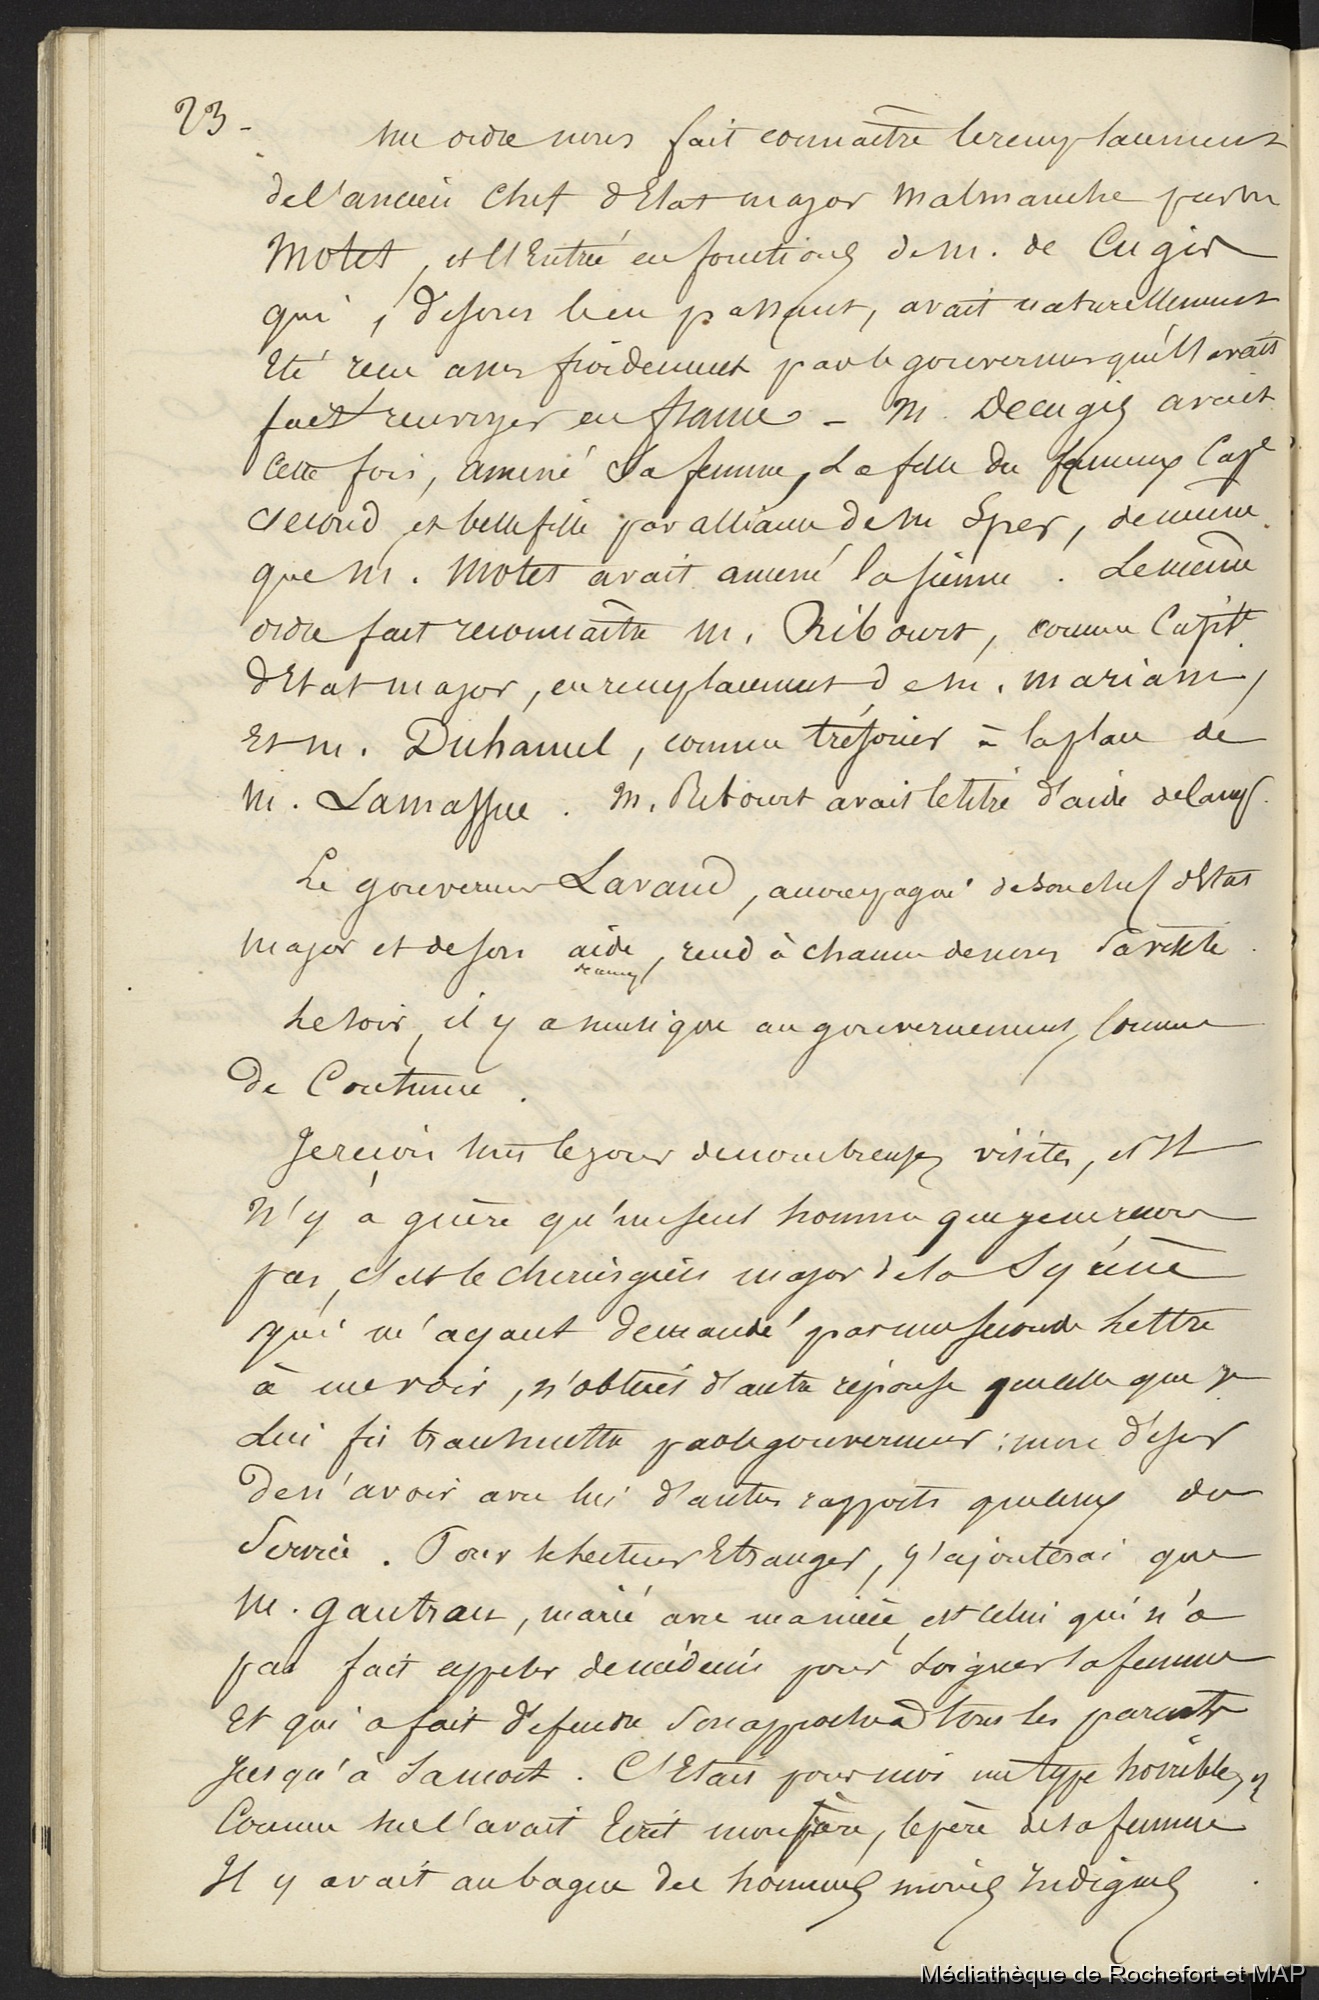 23 -
Un ordre nous fait connaître le remplacement
de l'ancien Chef d'Etat major Malmanche par Mr
Motet, et l'Entrée en fonctions de M. de Cugis
qui, disons le en passant, avait naturellement
Eté reçu assez froidement par le gouverneur qu'il avait
fait renvoyer en france - M. Decugis avait
Cette fois, amené Sa femme, La fille du fameux Cape
Second et belle fille par alliance de M. Sper, de même
que M. Motet avait amené la sienne. Le même
ordre fait reconnaître M. Ribourt, comme Capite
d'Etat major, en remplacement de M. Mariani,
Et M. Duhamel, comme trésorier à la place de
M. Lamassue. M. Ribourt avait le titre d'aide de camp.
Le gouverneur Lavaud, accompagné de son chef d'Etat
Major et de son aide de camp, rend à chacun de nous Sa visite.
Le soir, il y a musique au gouvernement, Comme
de Coutume.
Je reçois tous les jours de nombreuses visites, et Il
N'y a guère qu'un seul homme que je ne reçois
pas, c'est le chirurgien major de la Syrène
qui m'ayant demandé par une seconde Lettre
à me voir, n'obtint d'autre réponse que celle que je
Lui fis transmettre par le gouverneur: mon désir
de n'avoir avec lui d'autres rapports que ceux du
Service. Pour le lecteur Etranger, j'ajouterai que
M. gautrau, marié avec ma nièce, est celui qui n'a
pas fait appeler de médecins pour Soigner sa femme
Et qui a fait défendre Son approche à tous les parents
Jusqu'à Sa mort. C'Etait pour moi un type horrible, et
Comme me l'avait Ecrit mon frère, le père de sa femme
Il y avait au bagne des hommes moins Indignes
Médiathèque de Rochefort et MAP